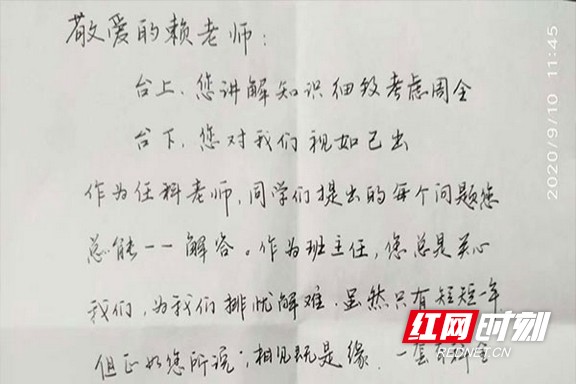 敬爱的赖老师：
台上、您讲解知识细致考虑周全
台下、您对我们视如己出
作为任科老师，同学们提出的每个问题您
总能一一解答。作为班主任，您总是关心
我们，为我们排忧解难，虽然只有短短一年
但正如您所说，相见既是缘，一
红网时刻
REDNET.CN
2020/9/10 11:45